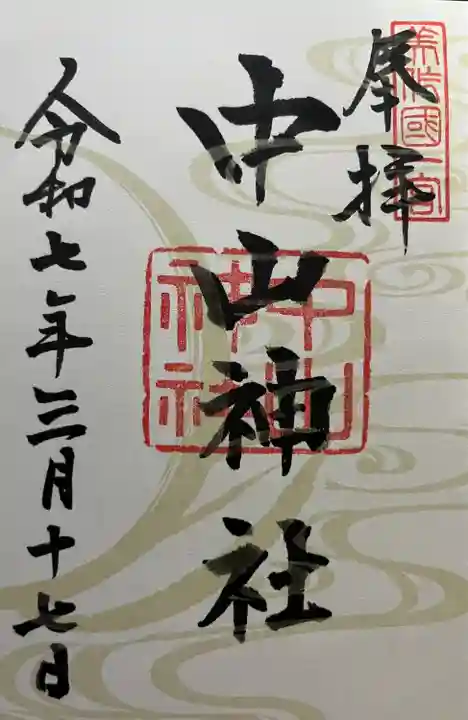 美作國一宮
奉拝
中山神社
中山神社
令和七年三月十七日